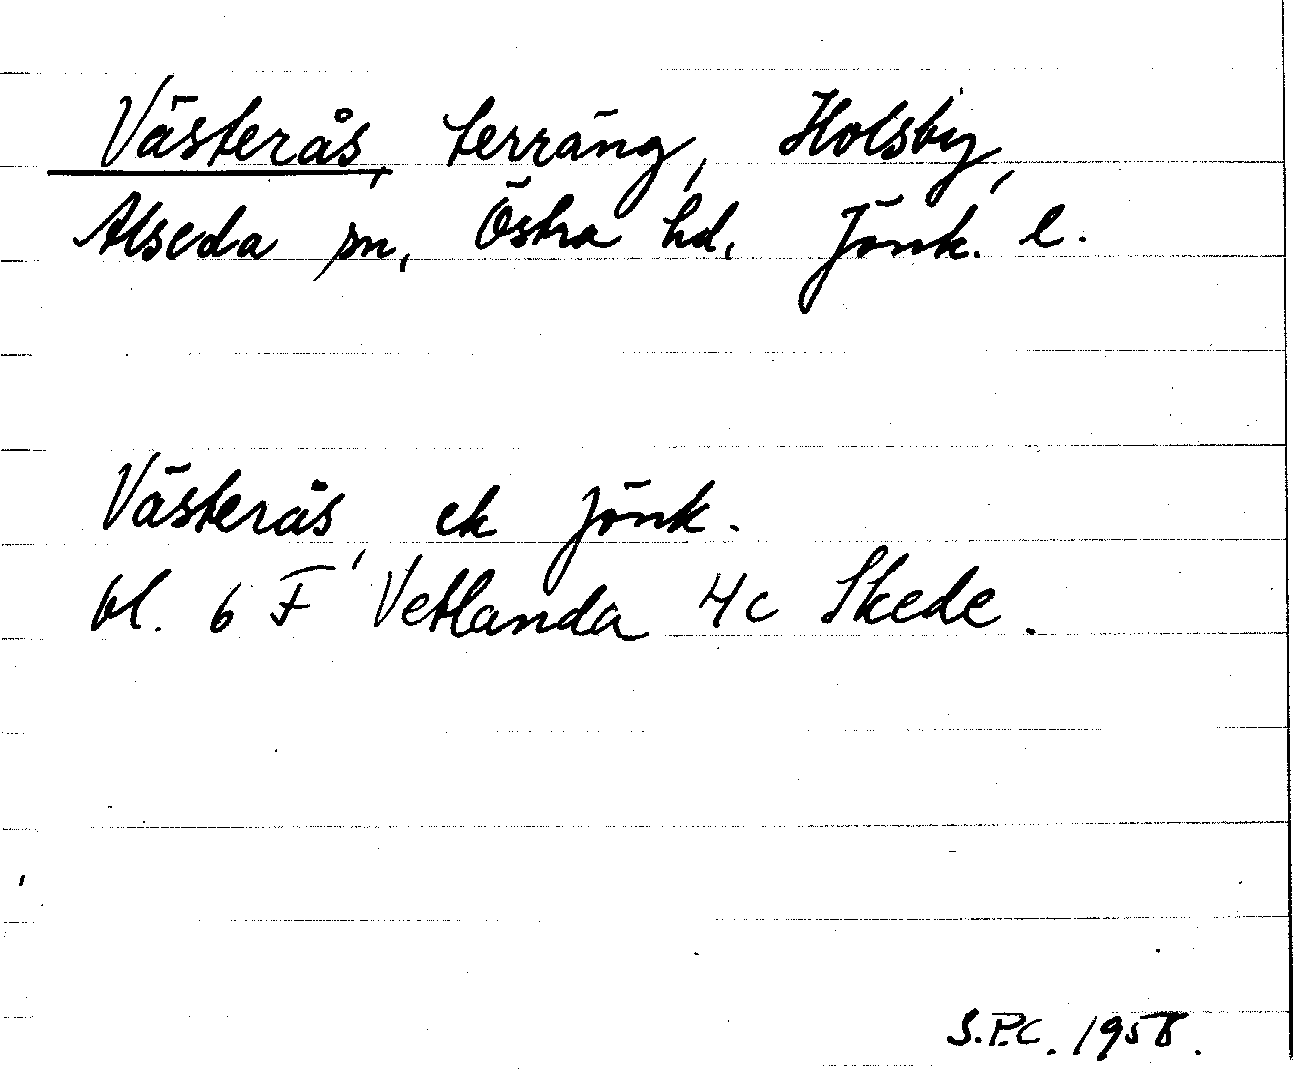 Västerås, terräng, Holsby,
Alseda sn, Östra hd. Jönk. l.
Västerås, ek Jönk.
bl. 6 F Vetlanda 4c Skede.
S.P.C. 1958.